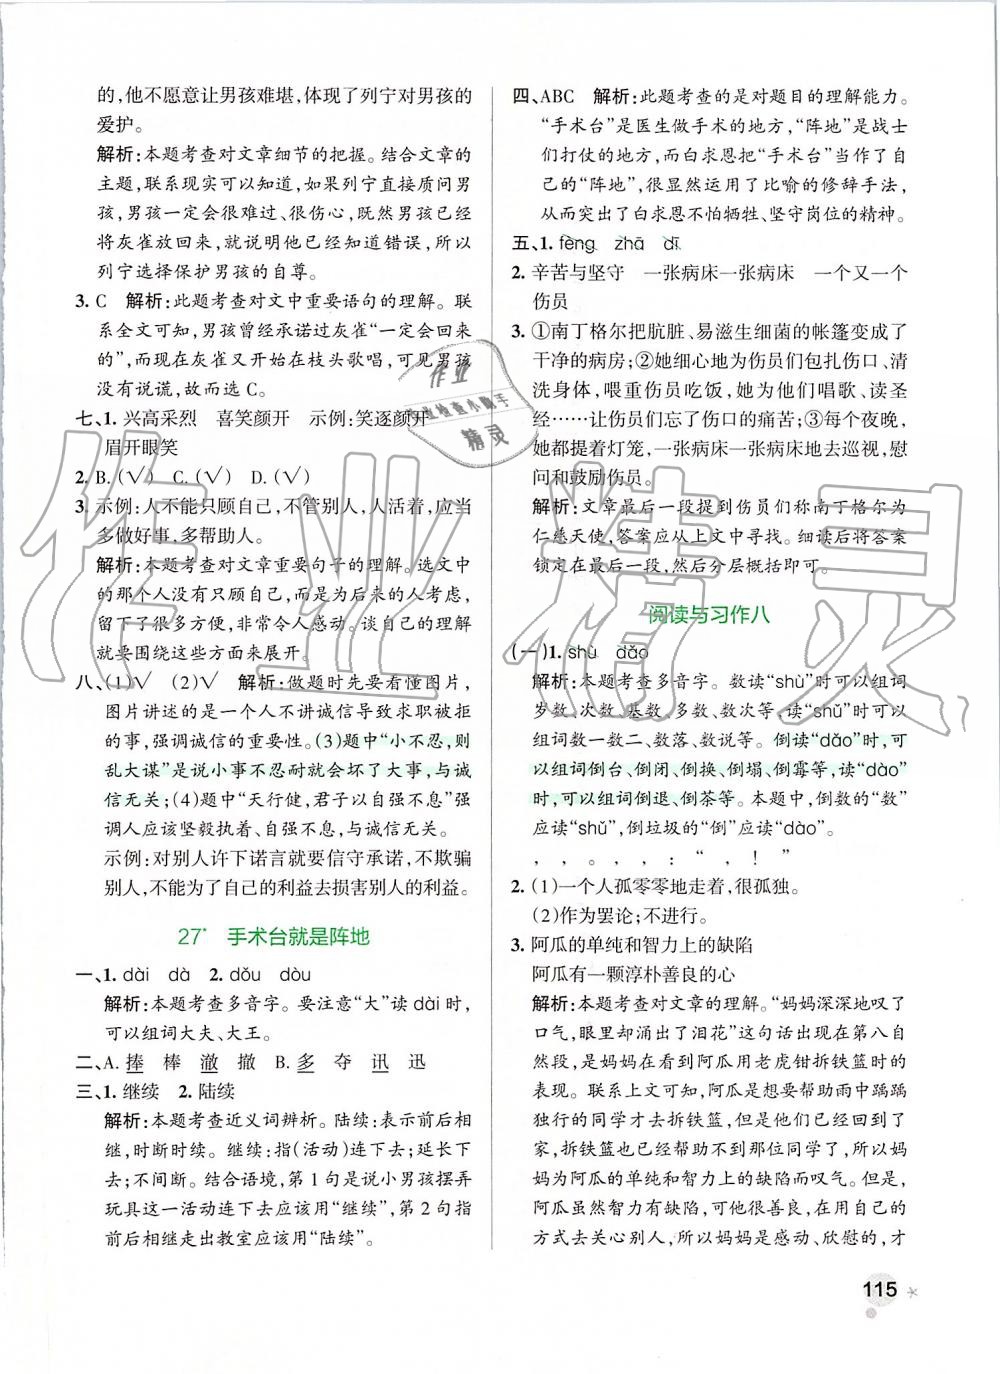 的,他不愿意让男孩难堪,体现了列宁对男孩的
爱护。
解析:本题考查对文章细节的把握。结合文章的
主题,联系现实可以知道,如果列宁直接质问男
孩,男孩一定会很难过、很伤心,既然男孩已经
将灰雀放回来,就说明他已经知道错误,所以
列宁选择保护男孩的自尊。
3. C 解析:此题考查对文中重要语句的理解。联
系全文可知,男孩曾经承诺过灰雀“一定会回来
的”,而现在灰雀又开始在枝头歌唱,可见男孩
没有说谎,故而选 C。
七、1. 兴高采烈 喜笑颜开 示例:笑逐颜开
眉开眼笑
2. B. (√) C. (√) D. (√)
3. 示例:人不能只顾自己,不管别人,人活着,应当
多做好事,多帮助人。
解析:本题考查对文章重要句子的理解。选文中
的那个人没有只顾自己,而是为后来的人考虑,
留下了很多方便,非常令人感动。谈自己的理解
就要围绕这些方面来展开。
八、(1)√ (2)√ 解析:做题时先要看懂图片,
图片讲述的是一个人不讲诚信导致求职被拒
的事,强调诚信的重要性。(3)题中“小不忍,则
乱大谋”是说小事不忍耐就会坏了大事,与诚
信无关;(4)题中“天行健,君子以自强不息”强
调人应该坚毅执着、自强不息,与诚信无关。
示例:对别人许下诺言就要信守承诺,不欺骗
别人,不能为了自己的利益去损害别人的利益。
27* 手术台就是阵地
一、1. dài dà 2. dǒu dòu
解析:本题考查多音字。要注意“大”读 dài 时,
可以组词大夫、大王。
二、A. 捧 棒 澈 撤 B. 多 夺 讯 迅
三、1. 继续 2. 陆续
解析:本题考查近义词辨析。陆续:表示前后相
继,时断时续。继续:指(活动)连下去;延长下
去;不间断。结合语境,第 1 句是说小男孩摆弄
玩具这一活动连下去应该用“继续”,第 2 句指
前后相继走出教室应该用“陆续”。
四、ABC 解析:此题考查的是对题目的理解能力。
“手术台”是医生做手术的地方,“阵地”是战士
们打仗的地方,而白求恩把“手术台”当作了自
己的“阵地”,很显然运用了比喻的修辞手法,
从而突出了白求恩不怕牺牲、坚守岗位的精神。
五、1. fèng zhā dī
2. 辛苦与坚守 一张病床一张病床 一个又一个
伤员
3. ①南丁格尔把肮脏、易滋生细菌的帐篷变成了
干净的病房;②她细心地为伤员们包扎伤口、清
洗身体,喂重伤员吃饭,她为他们唱歌、读圣
经……让他们减少了伤口的痛苦;③每个夜晚,
她都提着灯笼,一张病床一张病床地去巡视,慰
问和鼓励伤员。
解析:文章最后一段提到伤员们称南丁格尔为
仁慈天使,答案应从上文中寻找。细读后将答案
锁定在最后一段,然后分层概括即可。
阅读与习作八
(一)1. shù dǎo
解析:本题考查多音字。数读“shù”时可以组词
岁数、次数、基数、多数、数次等,读“shǔ”时可以
组词数一数二、数落、数说等。倒读“dǎo”时,可
以组词倒台、倒闭、倒换、倒塌、倒霉等,读“dào”
时,可以组词倒退、倒茶等。本题中,倒数的“数”
应读“shǔ”,倒垃圾的“倒”应读“dào”。
, , 。 , : “ , ! ”
2. (1)一个人孤零零地走着,很孤独。
(2)作为罢论;不进行。
3. 阿瓜的单纯和智力上的缺陷
阿瓜有一颗淳朴善良的心
解析:本题考查对文章的理解。“妈妈深深地叹了
口气,眼里却涌出了泪花”这句话出现在第八自
然段,是妈妈在看到阿瓜用老虎钳拆铁篮时的
表现。联系上文可知,阿瓜是想帮助雨中踽踽
独行的同学才去拆铁篮,但是他们已经回到了
家,拆铁篮也已经帮助不到那位同学了,所以妈
妈为阿瓜的单纯和智力上的缺陷而叹气。但是,
阿瓜虽然智力有缺陷,可他很善良,在用自己的
方式去关心别人,所以妈妈是感动、欣慰的,才
115
作业
作业检查小助手
精灵
作业精灵